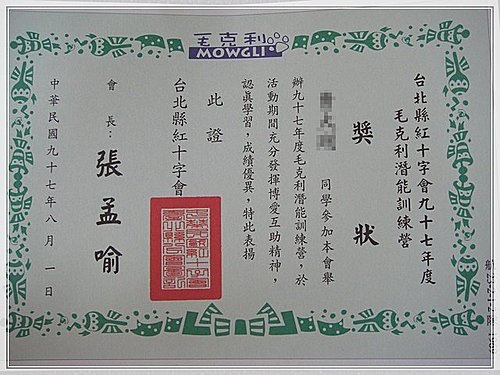 毛克利
MOWGLI
台北縣紅十字會九十七年度
毛克利潛能訓練營
獎狀
同學參加本會舉
辦九十七年度毛克利潛能訓練營，於
活動期間充分發揮博愛互助精神，
認真學習，成績優異，特此表揚
此證
台北縣紅十字會
會長：張孟喻
中華民國九十七年八月一日